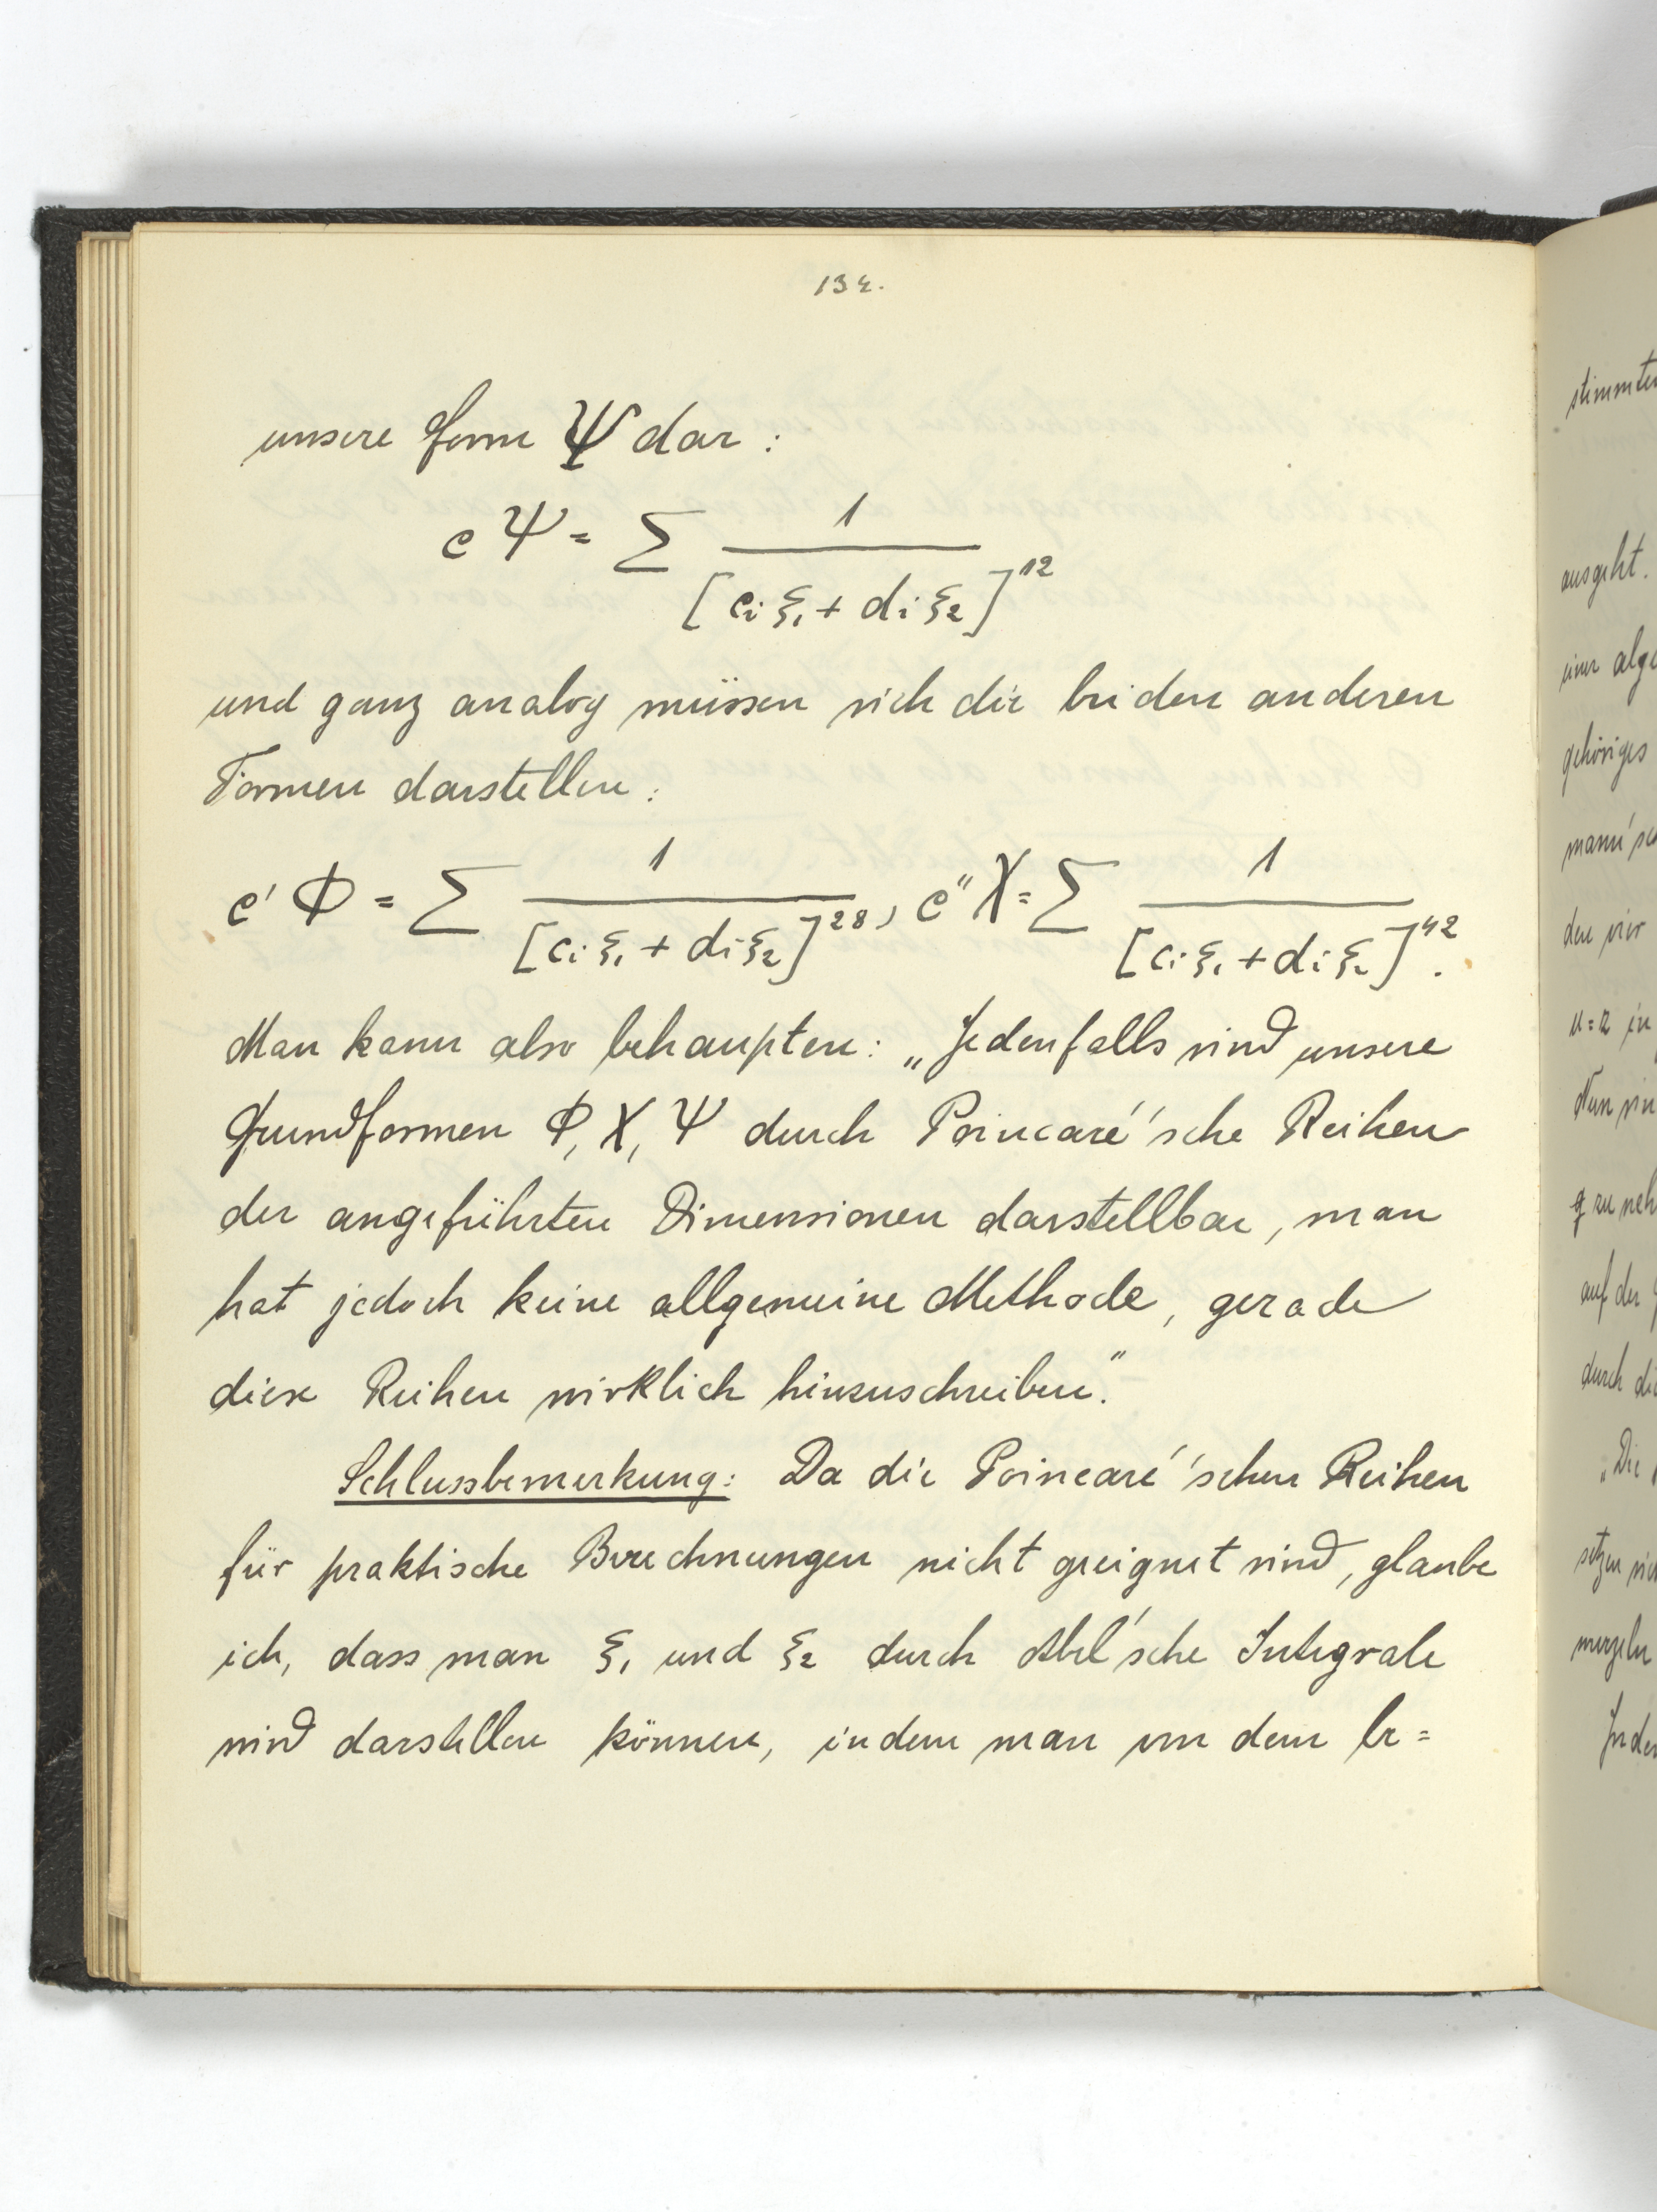 134.
unsere Form Ψ dar:
c Ψ = Σ 1 / [c_i ξ_1 + d_i ξ_2]^12
und ganz analog müssen sich die beiden anderen
Formen darstellen:
c' Φ = Σ 1 / [c_i ξ_1 + d_i ξ_2]^28, c" Χ = Σ 1 / [c_i ξ_1 + d_i ξ_2]^42.
Man kann also behaupten: „Jedenfalls sind unsere
Grundformen Φ, Χ, Ψ durch Poincaré'sche Reihen
der angeführten Dimensionen darstellbar, man
hat jedoch keine allgemeine Methode, gerade
diese Reihen wirklich hinzuschreiben."
Schlussbemerkung: Da die Poincaré'schen Reihen
für praktische Berechnungen nicht geeignet sind, glaube
ich, dass man ξ_1 und ξ_2 durch Abel'sche Integrale
wird darstellen können, indem man von dem be=
stimmten
ausgeht.
einer alge
gehöriges
mann'sc
den vier
n=2 in
Nun sin
g zu neh
auf der
durch die
„Die
setzen sich
merzeln
Inde